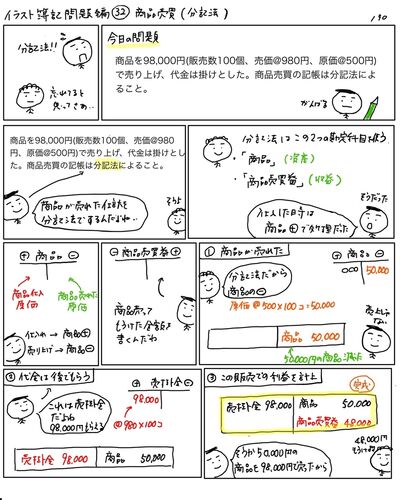 イラスト簿記問題編㉜ 商品売買(分記法)
190
分記法!!
忘れてると
思ってさぁ…
今日の問題
商品を98,000円(販売数100個、売価@980円、原価@500円)
で売り上げ、代金は掛けとした。商品売買の記帳は分記法によ
ること。
がんばる
商品を98,000円(販売数100個、売価@980
円、原価@500円)で売り上げ、代金は掛けとし
た。商品売買の記帳は分記法によること。
商品が売れた仕訳を
分記法でするんだよね…
そうよ
分記法はこの2つの勘定科目を使う
・「商品」(資産)
・「商品売買益」(収益)
そうだった
仕入した日寺は
商品⊕で処理だった
⊕ 商品 ⊖
商品仕入
原価
商品売れた
原価
仕入れ→商品⊕
売り上げ→商品⊖
⊖ 商品売買益 ⊕
商品売って
もうけた金額を
書くんだね
① 商品が売れた
分記法だから
商品の⊖
商品 ⊖
〇〇〇 50,000
原価@500×100コ=50,000
売上じゃ
ない
商品 50,000
50,000円の商品減った
② 代金は後でもらう
これは売掛金
だよね
98,000円もらえる
⊕ 売掛金 ⊖
98,000
@980×100コ
売掛金 98,000 商品 50,000
③ この販売での利益を計上
完成
売掛金 98,000 商品 50,000
商品売買益 48,000
そうか50,000円の
商品を98,000円で売ったから
48,000円
もうけてる